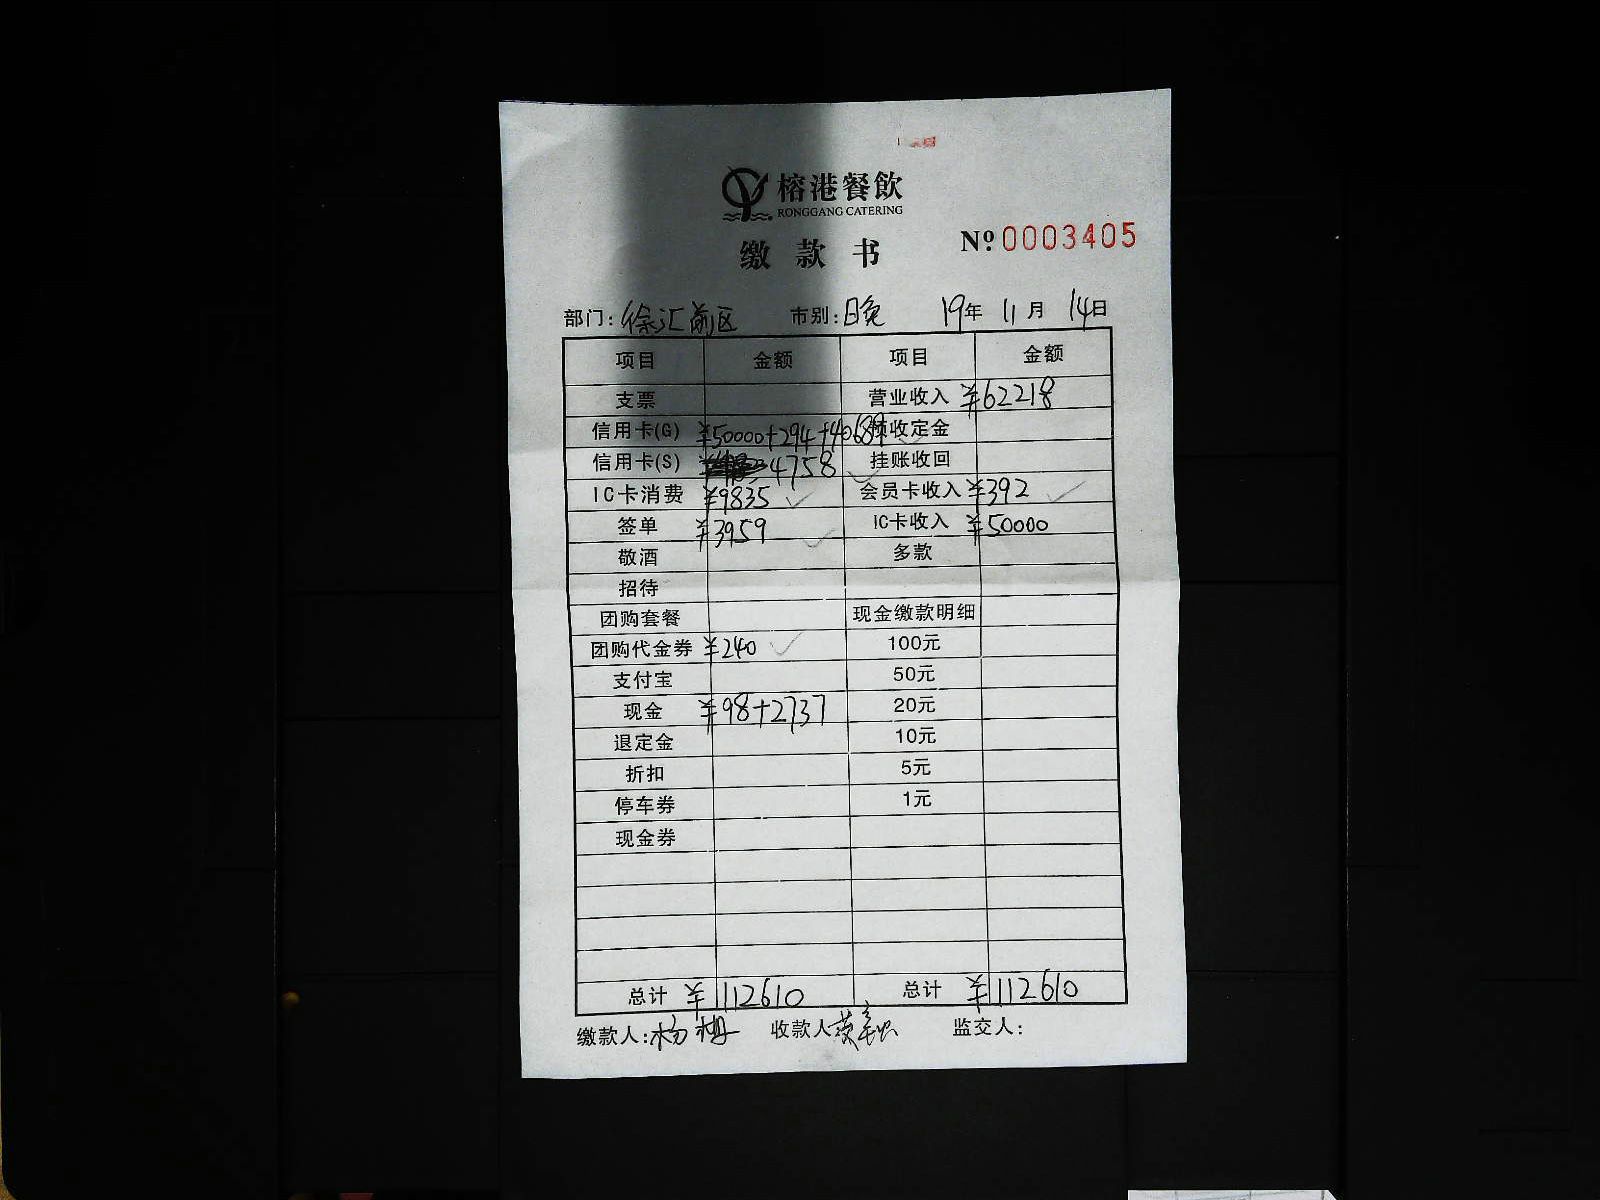 榕港餐飲
RONGGANG CATERING
缴款书
No. 0003405
部门: 徐汇前区 市别: 晚 19年 11月 14日
项目 金额 项目 金额
支票 营业收入 ¥62218
信用卡(G) ¥50000+294+40689 预收定金
信用卡(S) 4758 挂账收回
IC卡消费 ¥9835 会员卡收入 ¥392
签单 ¥3959 IC卡收入 ¥50000
敬酒 多款
招待
团购套餐 现金缴款明细
团购代金券 ¥240 100元
支付宝 50元
现金 ¥98+2737 20元
退定金 10元
折扣 5元
停车券 1元
现金券
总计 ¥112610 总计 ¥112610
缴款人: 杨梅 收款人 监交人: